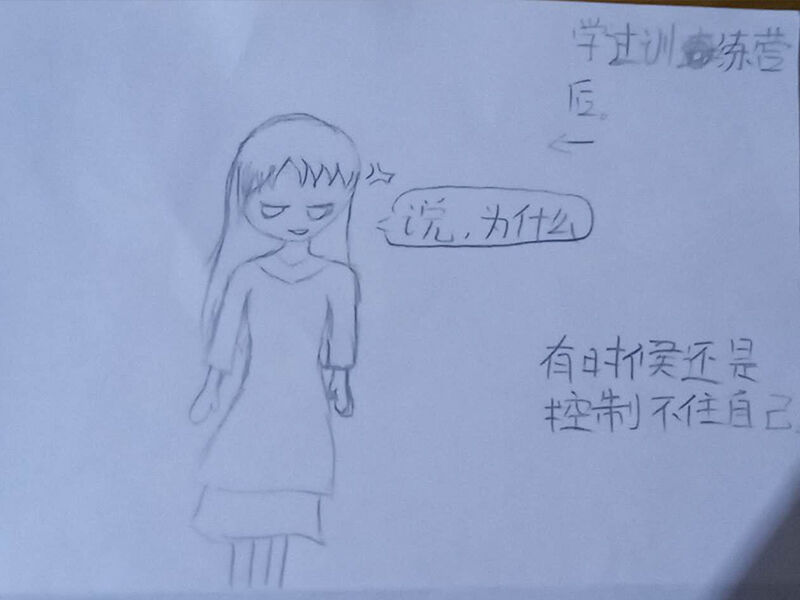 学过训练营
后。
说,为什么
有时候还是
控制不住自己